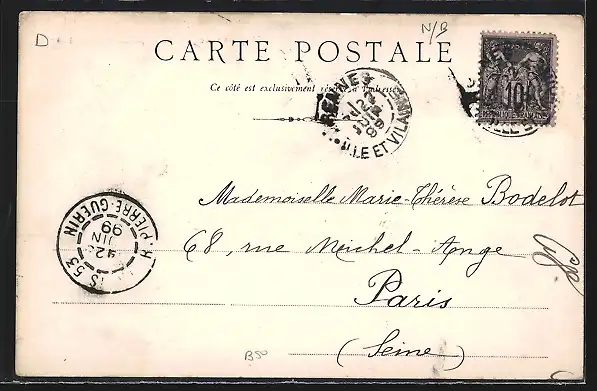 D
N/B
CARTE POSTALE
Ce côté est exclusivement réservé à l'adresse
RENNES
ILLE ET VILAINE
10
REPUBLIQUE FRANÇAISE
Mademoiselle Marie-Thérèse Bodelot
68, rue Michel-Ange
Paris
(Seine)
PARIS 53
R. PIERRE-GUERIN
JUIN
99
B50